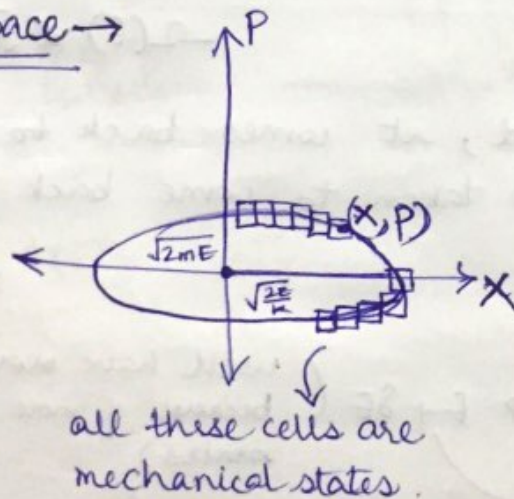 ace →
P
(X, P)
√2mE
√2E/k
X
all these cells are
mechanical states.